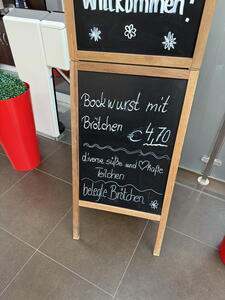 Willkommen!
Bockwurst mit
Brötchen €4,70
diverse süße und ♡hafte
Teilchen
belegte Brötchen